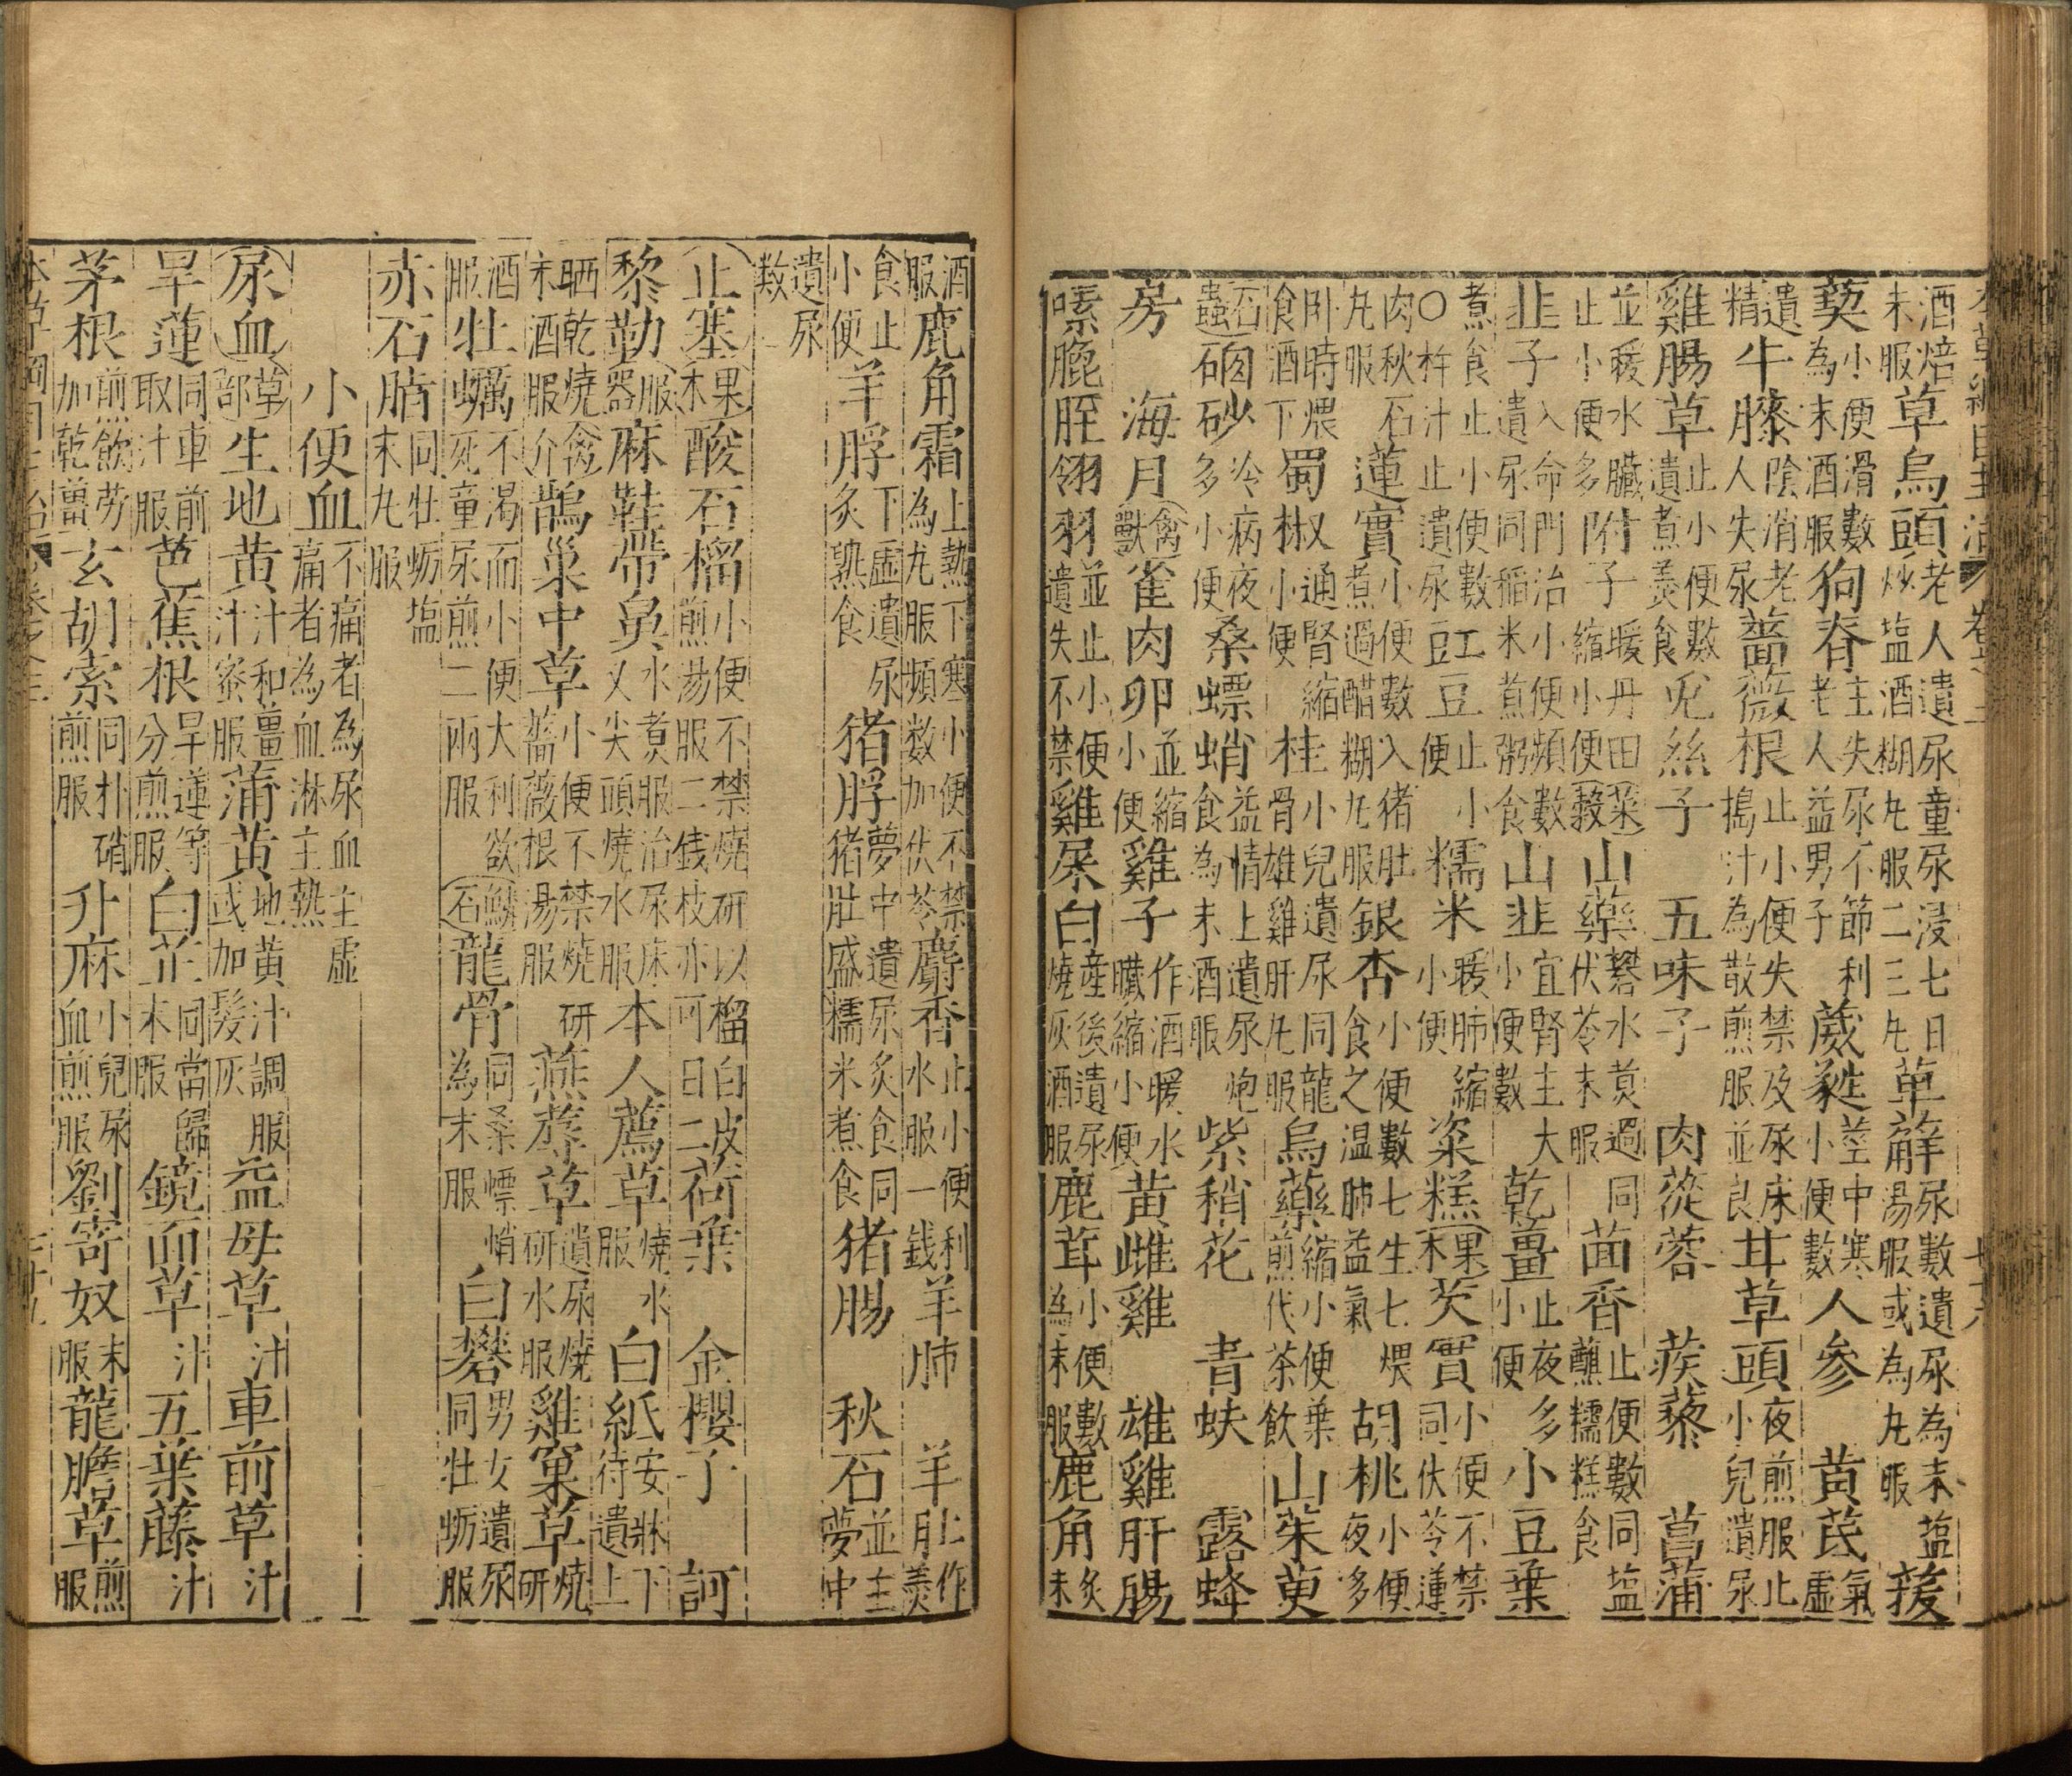 酒焙末服草烏頭老人遺尿童尿浸七日炒塩酒糊丸服二三丸萆薢尿數遺尿為末塩湯服或為丸服菝
葜小便滑數為末酒服狗脊主失尿不節利老人益男子葳蕤莖中寒小便數人參 黃芪氣虛
遺精牛膝陰消老人失尿薔薇根止小便失禁及尿床搗汁為散煎服並良甘草頭夜煎服止小兒遺尿
雞腸草止小便數遺煮羹食兎絲子 五味子 肉蓯蓉 蒺藜 菖蒲
並暖水臟止小便多附子暖丹田縮小便菜穀山藥礬水煑過同伏苓末服茴香止便數同塩蘸糯糕食
韭子入命門治小便頻數遺尿同稻米煮粥食山韭宜腎主大小便數乾薑止夜多小便小豆葉
煮食止小便數○杵汁止遺尿豇豆止小便糯米暖肺縮小便粢糕果木芡實小便不禁同伏苓蓮
肉秋石丸服蓮實小便數入猪肚煮過醋糊丸服銀杏小便數七生七煨食之温肺益氣胡桃小便夜多
卧時煨食酒下蜀椒通腎縮小便桂小兒遺尿同龍骨雄雞肝丸服烏藥縮小便葉煎代茶飲山茱萸
石蟲硇砂冷病夜多小便桑螵蛸益情上遺尿炮食為末酒服紫稍花 青蚨 露蜂
房 海月禽獸雀肉卵並縮小便雞子作酒暖水臟縮小便黃雌雞 雄雞肝腸
嗉膍胵翎羽並止小便遺失不禁雞屎白産後遺尿燒灰酒服鹿茸小便數為末服鹿角炙末
酒服鹿角霜上熱下寒小便不禁為丸服頻数加伏苓麝香止小便利水服一錢羊肺 羊肚作羮
食止小便羊脬下虛遺尿炙熟食猪脬夢中遺尿炙食同猪肚盛糯米煮食猪腸 秋石並主夢中
遺尿数
止塞果木酸石榴小便不禁燒研以榴白皮煎湯服二錢枝亦可日二荷葉 金櫻子 訶
黎勒服器麻鞋帶鼻水煑服治尿床又尖頭燒水服本人薦草燒水服白紙安牀下待遺上
晒乾燒末酒服禽介鵲巢中草小便不禁燒研薔薇根湯服燕蓐草遺尿燒研水服雞窠草燒研
酒服牡蠣不渴而小便大利欲死童尿煎二兩服鱗石龍骨同桑螵蛸為末服白礬男女遺尿同牡蛎服
赤石脂同牡蛎塩末丸服
小便血不痛者為尿血主虛痛者為血淋主熱
尿血草部生地黄汁和薑汁蜜服蒲黄地黄汁調服或加髮灰益母草汁車前草汁
旱蓮同車前取汁服芭蕉根旱蓮等分煎服白芷同當歸末服鏡面草汁五葉藤汁
茅根煎飲劳加乾薑玄胡索同朴硝煎服升麻小兒尿血煎服劉寄奴末服龍膽草煎服